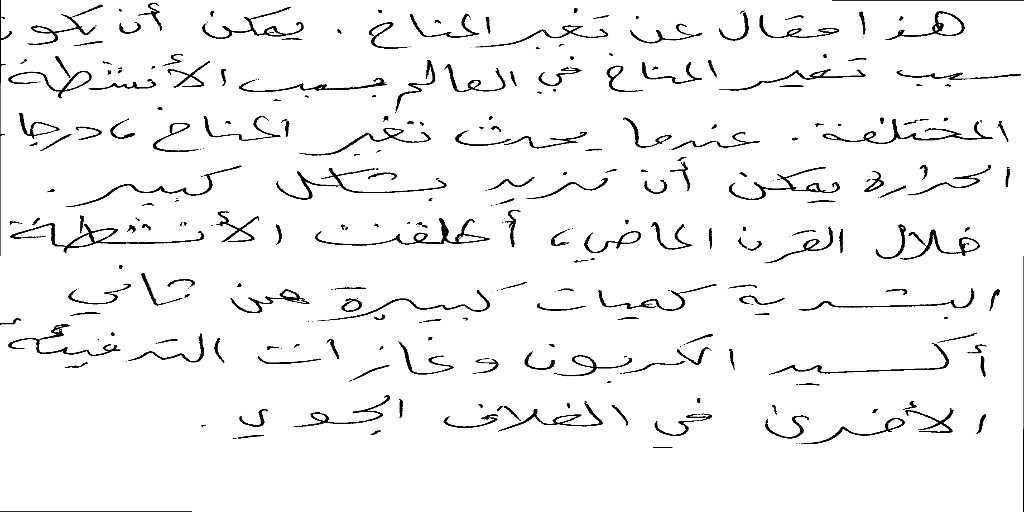 هذا مقال عن تغير المناخ. يمكن أن يكون
سبب تغير المناخ في العالم بسبب الأنشطة
المختلفة. عندما يحدث تغير المناخ، درجا
الحرارة يمكن أن تزيد بشكل كبير.
خلال القرن الماضي، أطلقت الأنشطة
البشرية كميات كبيرة من ثاني
أكسيد الكربون وغازات الدفيئة
الأخرى في الغلاف الجوي.